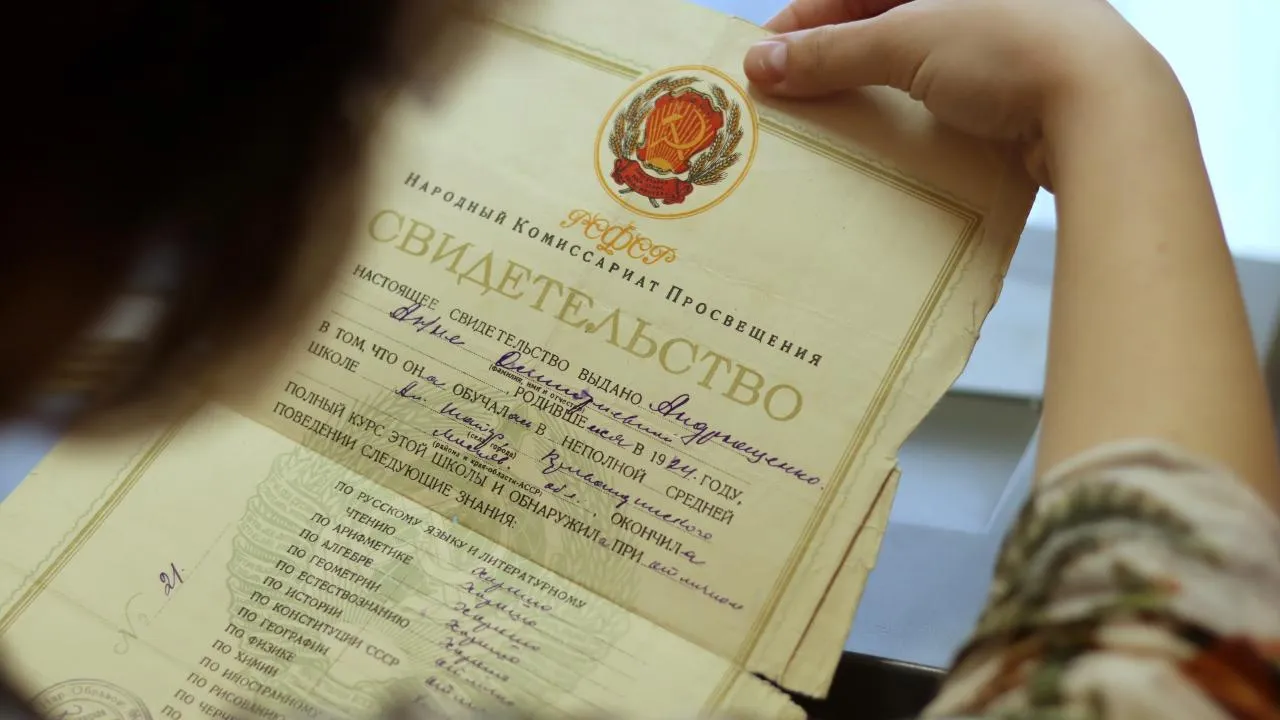 РСФСР
НАРОДНЫЙ КОМИССАРИАТ ПРОСВЕЩЕНИЯ
СВИДЕТЕЛЬСТВО
НАСТОЯЩЕЕ СВИДЕТЕЛЬСТВО ВЫДАНО Андрющенко
Анне Дмитриевне
(фамилия, имя и отчество)
, РОДИВШЕйся В 1924. ГОДУ,
В ТОМ, ЧТО ОНа ОБУЧАЛАсь В НЕПОЛНОЙ СРЕДНЕЙ
ШКОЛЕ
(села, города)
(района и края-области-АССР)
обл., ОКОНЧИЛа
ПОЛНЫЙ КУРС ЭТОЙ ШКОЛЫ И ОБНАРУЖИЛа ПРИ отличном
ПОВЕДЕНИИ СЛЕДУЮЩИЕ ЗНАНИЯ:
ПО РУССКОМУ ЯЗЫКУ И ЛИТЕРАТУРНОМУ
ЧТЕНИЮ хорошо
ПО АРИФМЕТИКЕ хорошо
ПО АЛГЕБРЕ хорошо
ПО ГЕОМЕТРИИ хорошо
ПО ЕСТЕСТВОЗНАНИЮ хорошо
ПО ИСТОРИИ
ПО КОНСТИТУЦИИ СССР
ПО ГЕОГРАФИИ
ПО ФИЗИКЕ
ПО ХИМИИ
ПО ИНОСТРАННОМУ
ПО РИСОВАНИЮ
ПО ЧЕРЧ
№ 21.